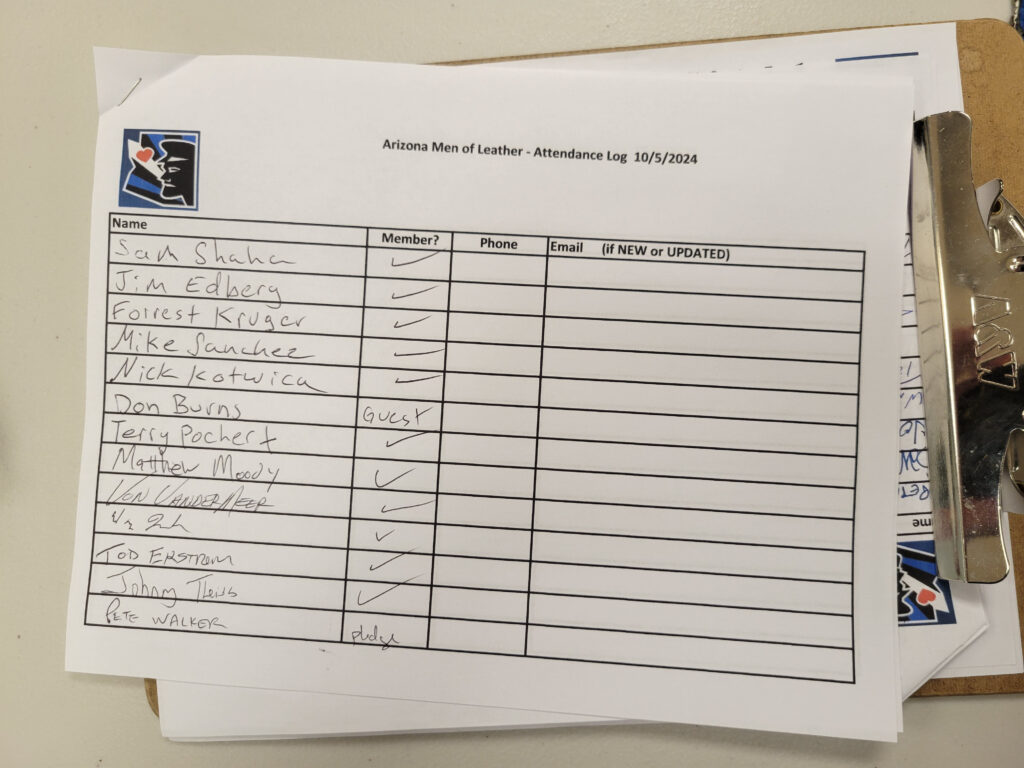 Arizona Men of Leather - Attendance Log 10/5/2024
Name Member? Phone Email (if NEW or UPDATED)
Sam Shaha ✓
Jim Edberg ✓
Forrest Kruger ✓
Mike Sanchez ✓
Nick Kotwica ✓
Don Burns Guest
Terry Pochert ✓
Matthew Moody ✓
Von VanderMeer ✓
✓
Tod Erstrom ✓
Johnny ✓
Pete Walker pledge